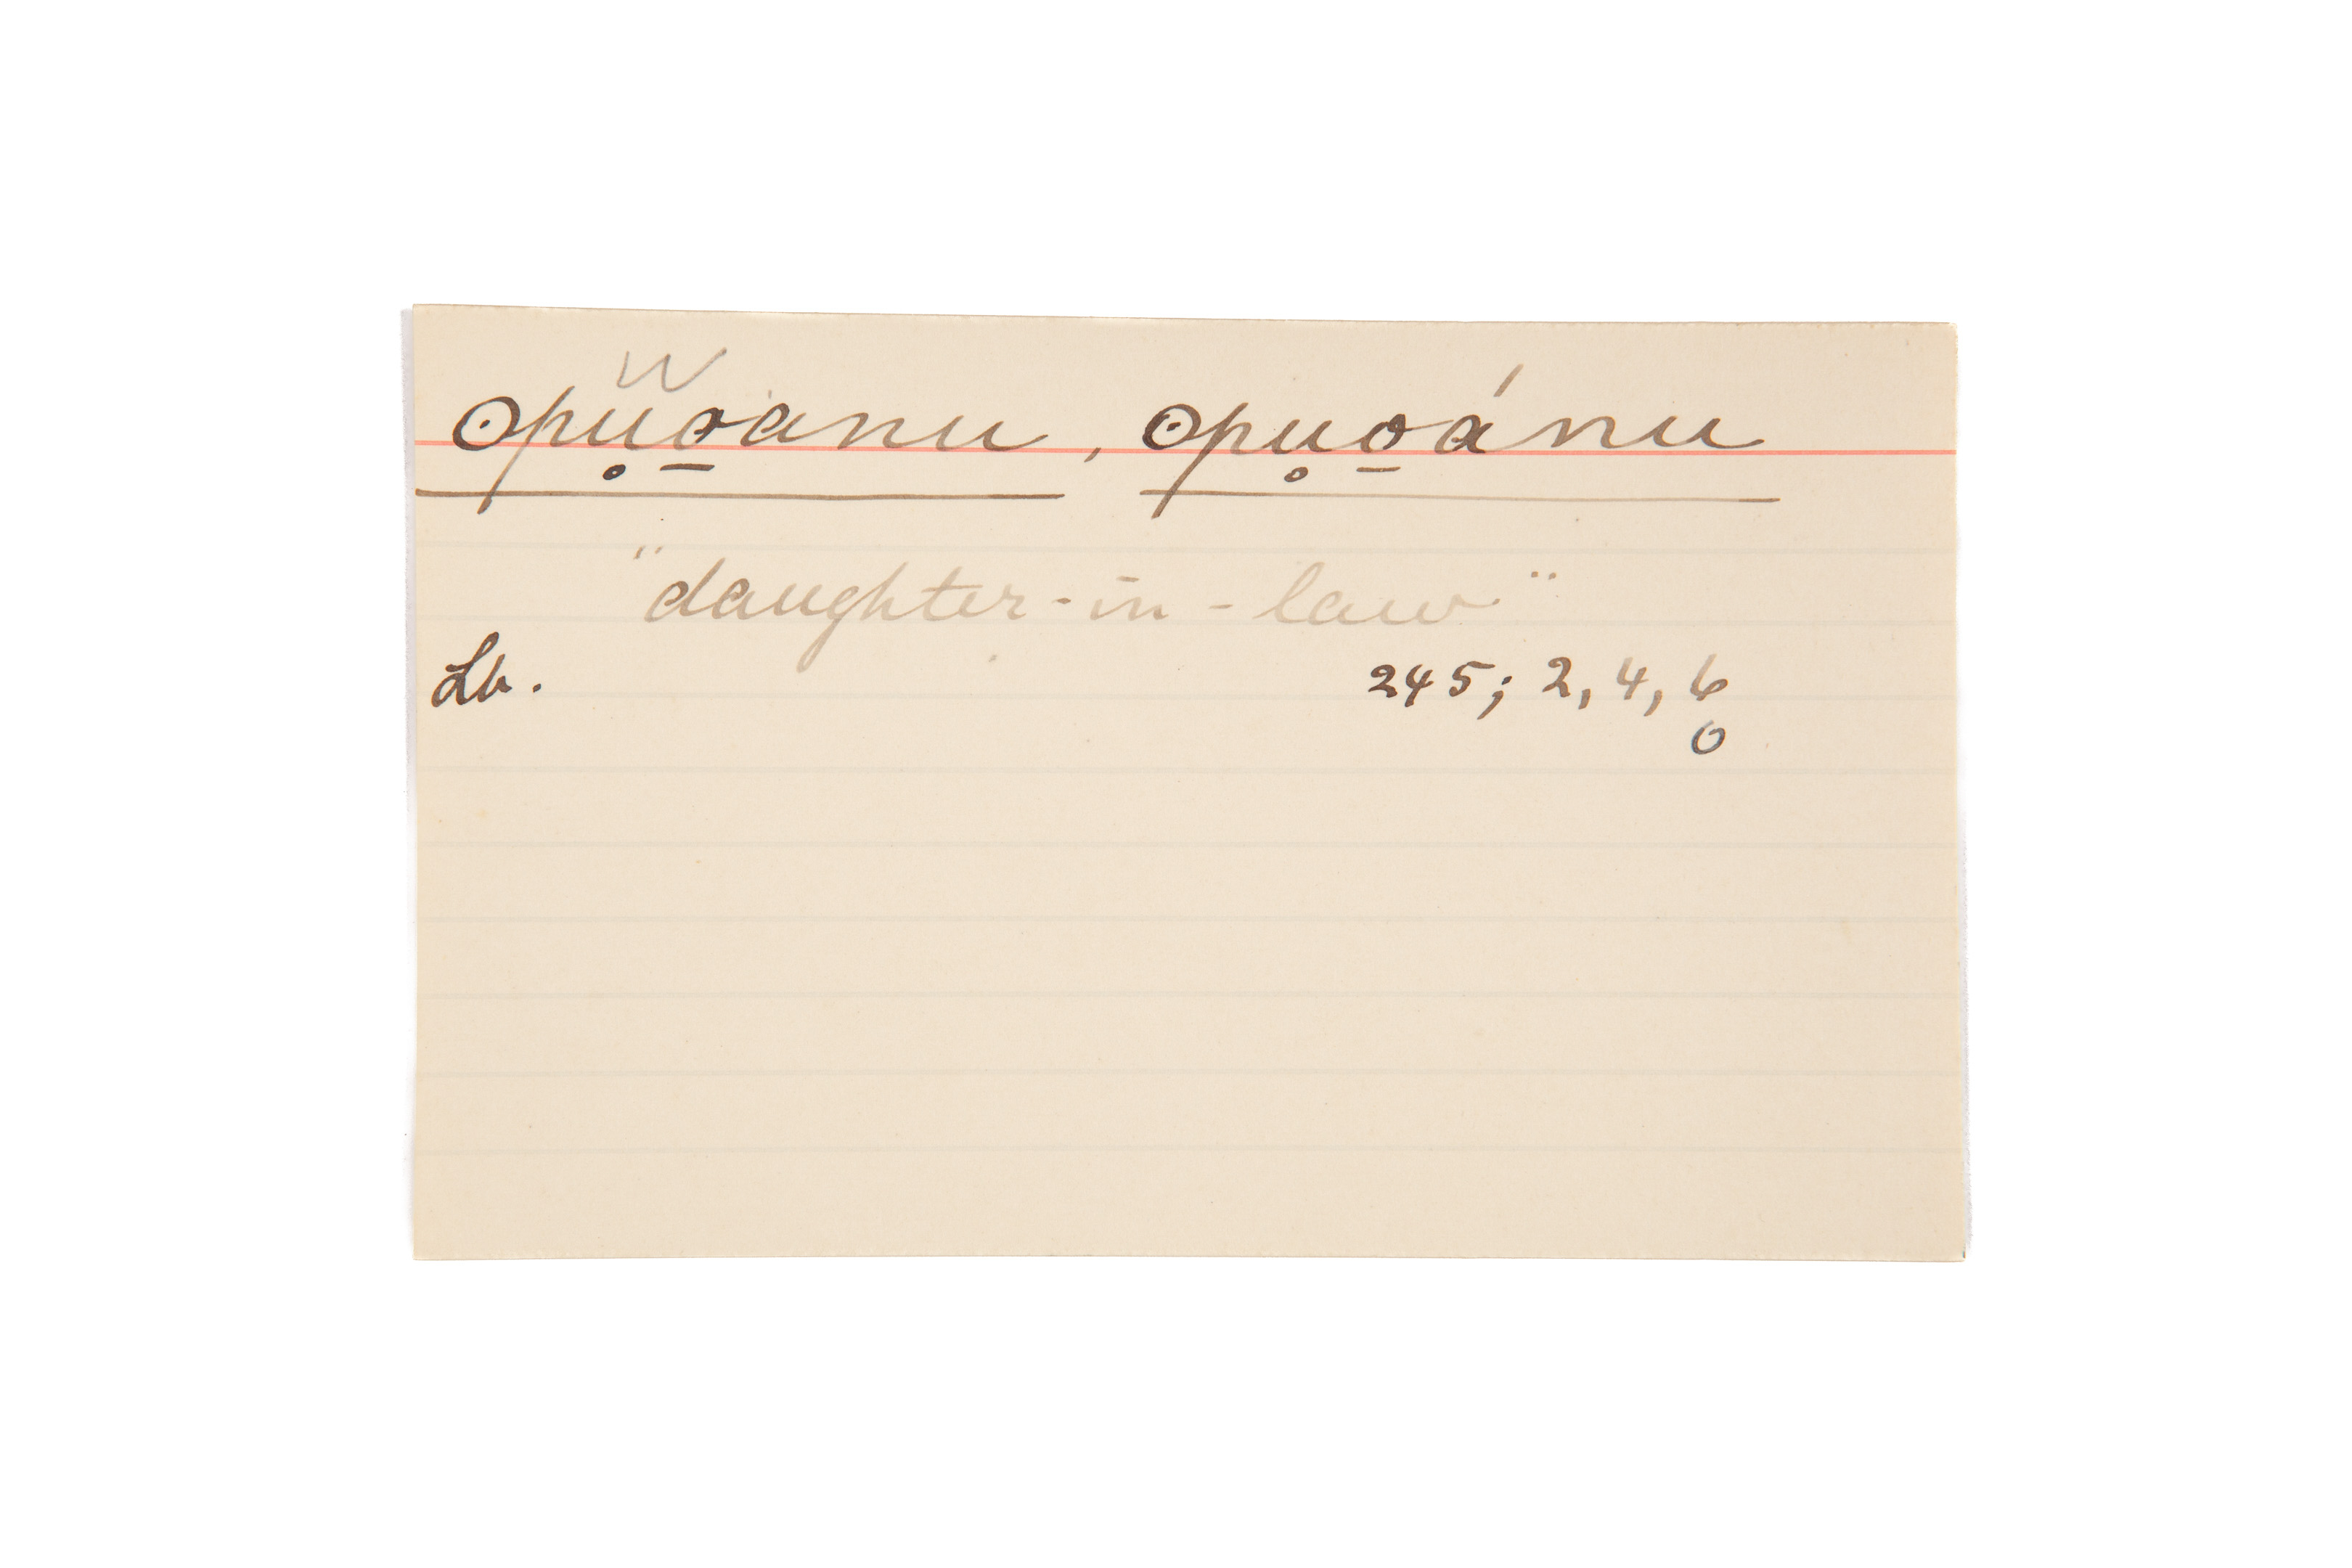 w
ʘpu̥o̱anu, ʘpu̥o̱ánu
"daughter-in-law"
Lb. 245; 2, 4, 6
0